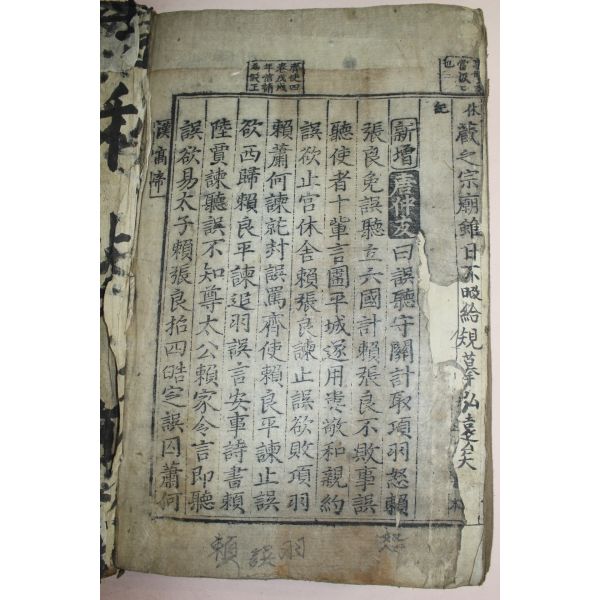 藏之宗廟雖日不暇給規摹弘遠矣
新增唐仲友曰誤聽守關計取項羽怒賴
張良免誤聽立六國計賴張良不敗事誤
聽使者十輩言圍平城遂用婁敬和親約
誤欲止宮休舍賴張良諫止誤欲敗項羽
賴蕭何諫就封誤罵齊使賴良平諫止誤
欲西歸賴良平諫追羽誤言安事詩書賴
陸賈諫聽誤不知尊太公賴家令言即聽
誤欲易太子賴張良招四皓定誤囚蕭何
漢高帝
賴 誤 羽 怒